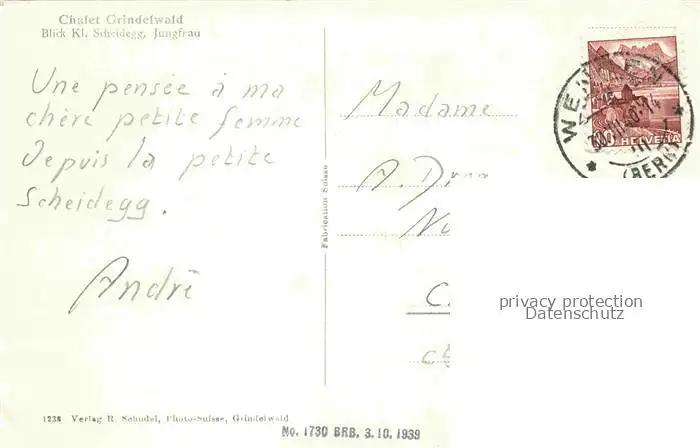 Chalet Grindelwald
Blick Kl. Scheidegg, Jungfrau
Une pensée à ma
chère petite femme
depuis la petite
Scheidegg.
André
Fabrication Suisse
Madame
A. D
No
C.
HELVETIA
WE
(BERN)
privacy protection
Datenschutz
1238 Verlag R. Schudel, Photo-Suisse, Grindelwald
No. 1730 BRB. 3.10.1939